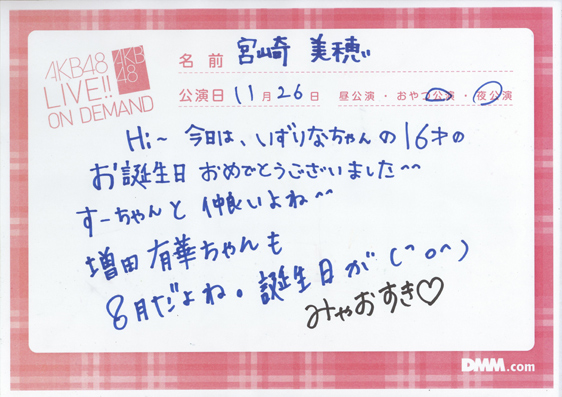 AKB48
LIVE!!
ON DEMAND
AKB
48
名前 宮崎 美穂
公演日 11月26日 昼公演・おやつ公演・夜公演
Hi~ 今日は、いずりなちゃんの16才の
お誕生日おめでとうございました^^
すーちゃんと 仲良いよね^^
増田有華ちゃんも
8月だよね。誕生日が(^o^)
みやおすき♡
DMM.com